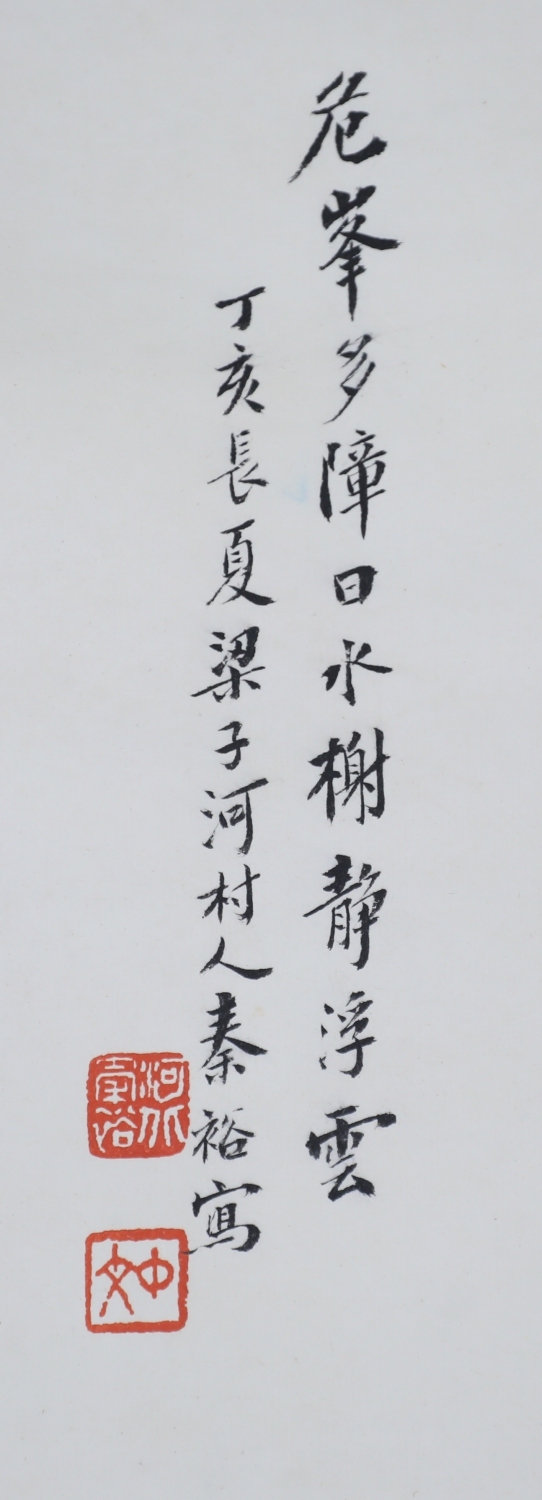 危峯多障日水榭静浮雲
丁亥長夏梁子河村人秦裕寫
河北秦裕
仲文